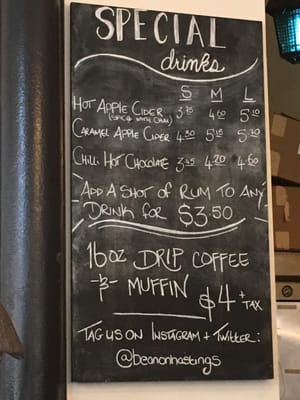 SPECIAL
drinks
S M L
HOT APPLE CIDER 3.75 4.60 5.10
CARAMEL APPLE CIDER 4.50 5.15 5.50
CHILI HOT CHOCOLATE 3.65 4.20 4.60
ADD A SHOT OF RUM TO ANY
DRINK FOR $3.50
16oz DRIP COFFEE
-&- MUFFIN $4 + TAX
TAG US ON INSTAGRAM + TWITTER:
@beanonhastings